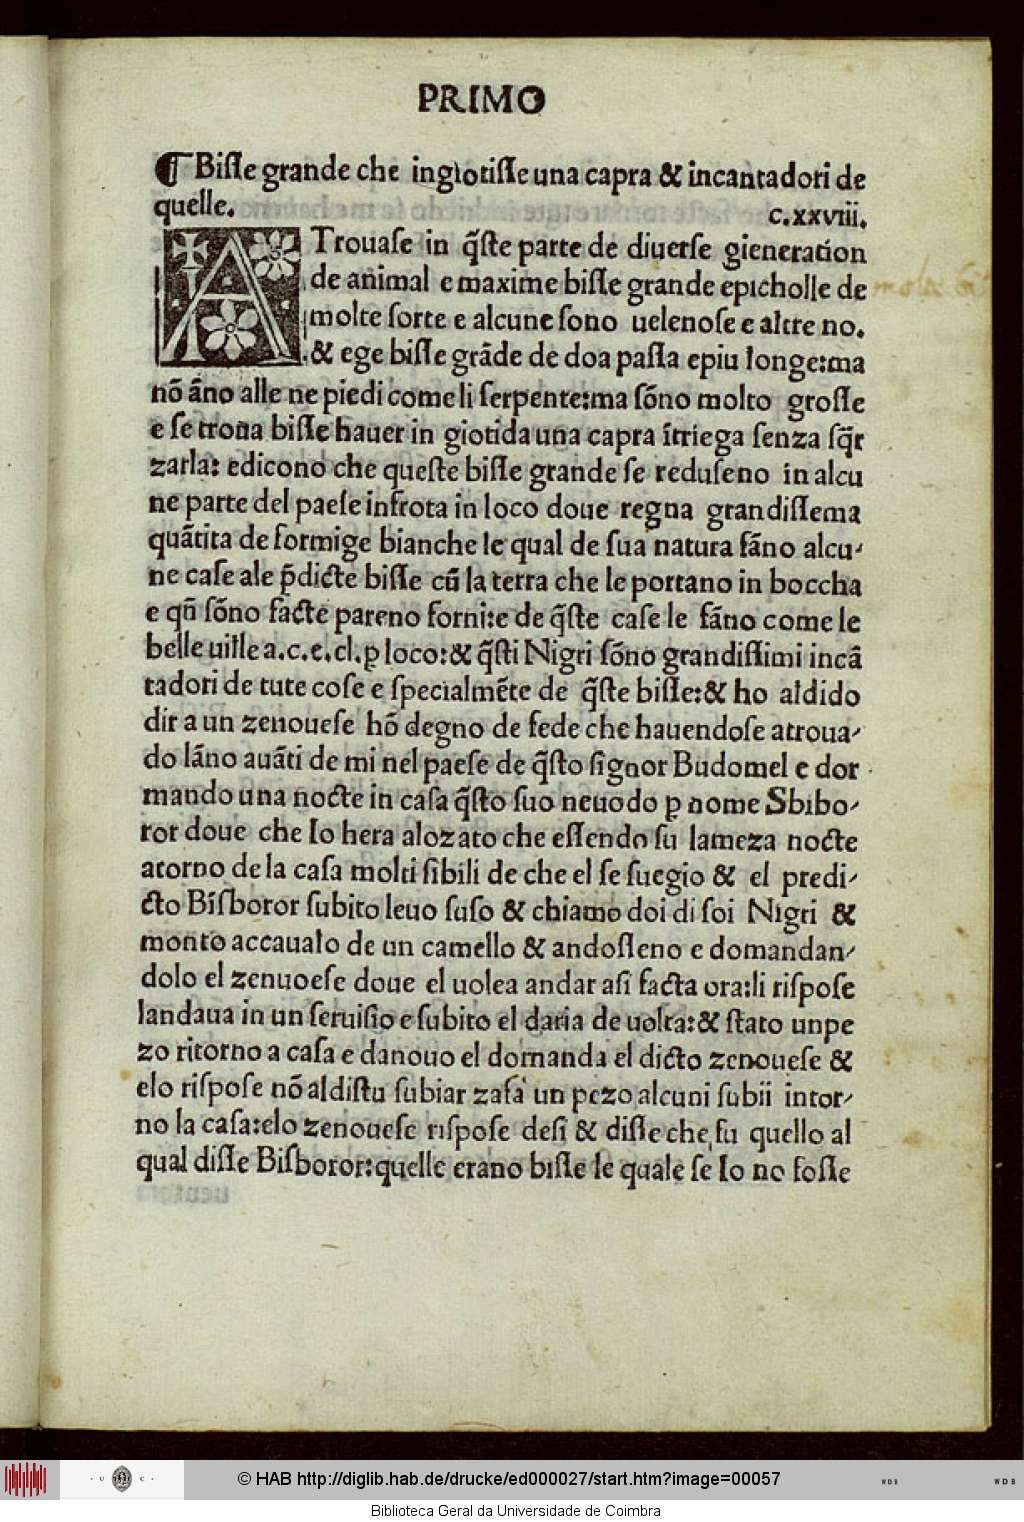 PRIMO
¶ Biſſe grande che ingiotiſſe una capra & incantadori de
quelle. c.xxviii.
ATrouaſe in q̃ſte parte de diuerſe gieneration
de animal e maxime biſſe grande epicholle de
molte ſorte e alcune ſono uelenoſe e altre no.
& ege biſſe grãde de doa paſſa epiu longe:ma
nõ ãno alle ne piedi come li ſerpente:ma ſõno molto groſſe
e ſe troua biſſe hauer in giotida una capra ĩtriega ſenza ſq̃r
zarla: edicono che queſte biſſe grande ſe reduſeno in alcu
ne parte del paeſe infrota in loco doue regna grandiſſema
quãtita de formige bianche le qual de ſua natura fãno alcu-
ne caſe ale p̃dicte biſſe cũ la terra che le portano in boccha
e qñ ſõno facte pareno forni:e de q̃ſte caſe le fãno come le
belle uille a.c.e.cl.ꝑ loco:& q̃ſti Nigri ſõno grandiſſimi incã
tadori de tute coſe e ſpecialmẽte de q̃ſte biſſe:& ho aldido
dir a un zenoueſe hõ degno de fede che hauendoſe atroua-
do lãno auãti de mi nel paeſe de q̃ſto ſignor Budomel e dor
mando una nocte in caſa q̃ſto ſuo neuodo ꝑ nome Sbibo-
ror doue che Io hera alozato che eſſendo ſu lameza nocte
atorno de la caſa molti ſibili de che el ſe ſuegio & el predi-
cto Biſboror ſubito leuo ſuſo & chiamo doi di ſoi Nigri &
monto accaualo de un camello & andoſſeno e domandan-
dolo el zenuoeſe doue el uolea andar aſi facta ora:li riſpoſe
landaua in un ſeruiſio e ſubito el daria de uolta:& ſtato unpe
zo ritorno a caſa e danouo el domanda el dicto zenoueſe &
elo riſpoſe nõ aldiſtu ſubiar zaſa un pezo alcuni ſubii intor-
no la caſa:elo zenoueſe riſpoſe deſi & diſſe che fu quello al
qual diſſe Biſboror:quelle erano biſſe le quale ſe Io no foſſe
© HAB http://diglib.hab.de/drucke/ed000027/start.htm?image=00057
Biblioteca Geral da Universidade de Coimbra